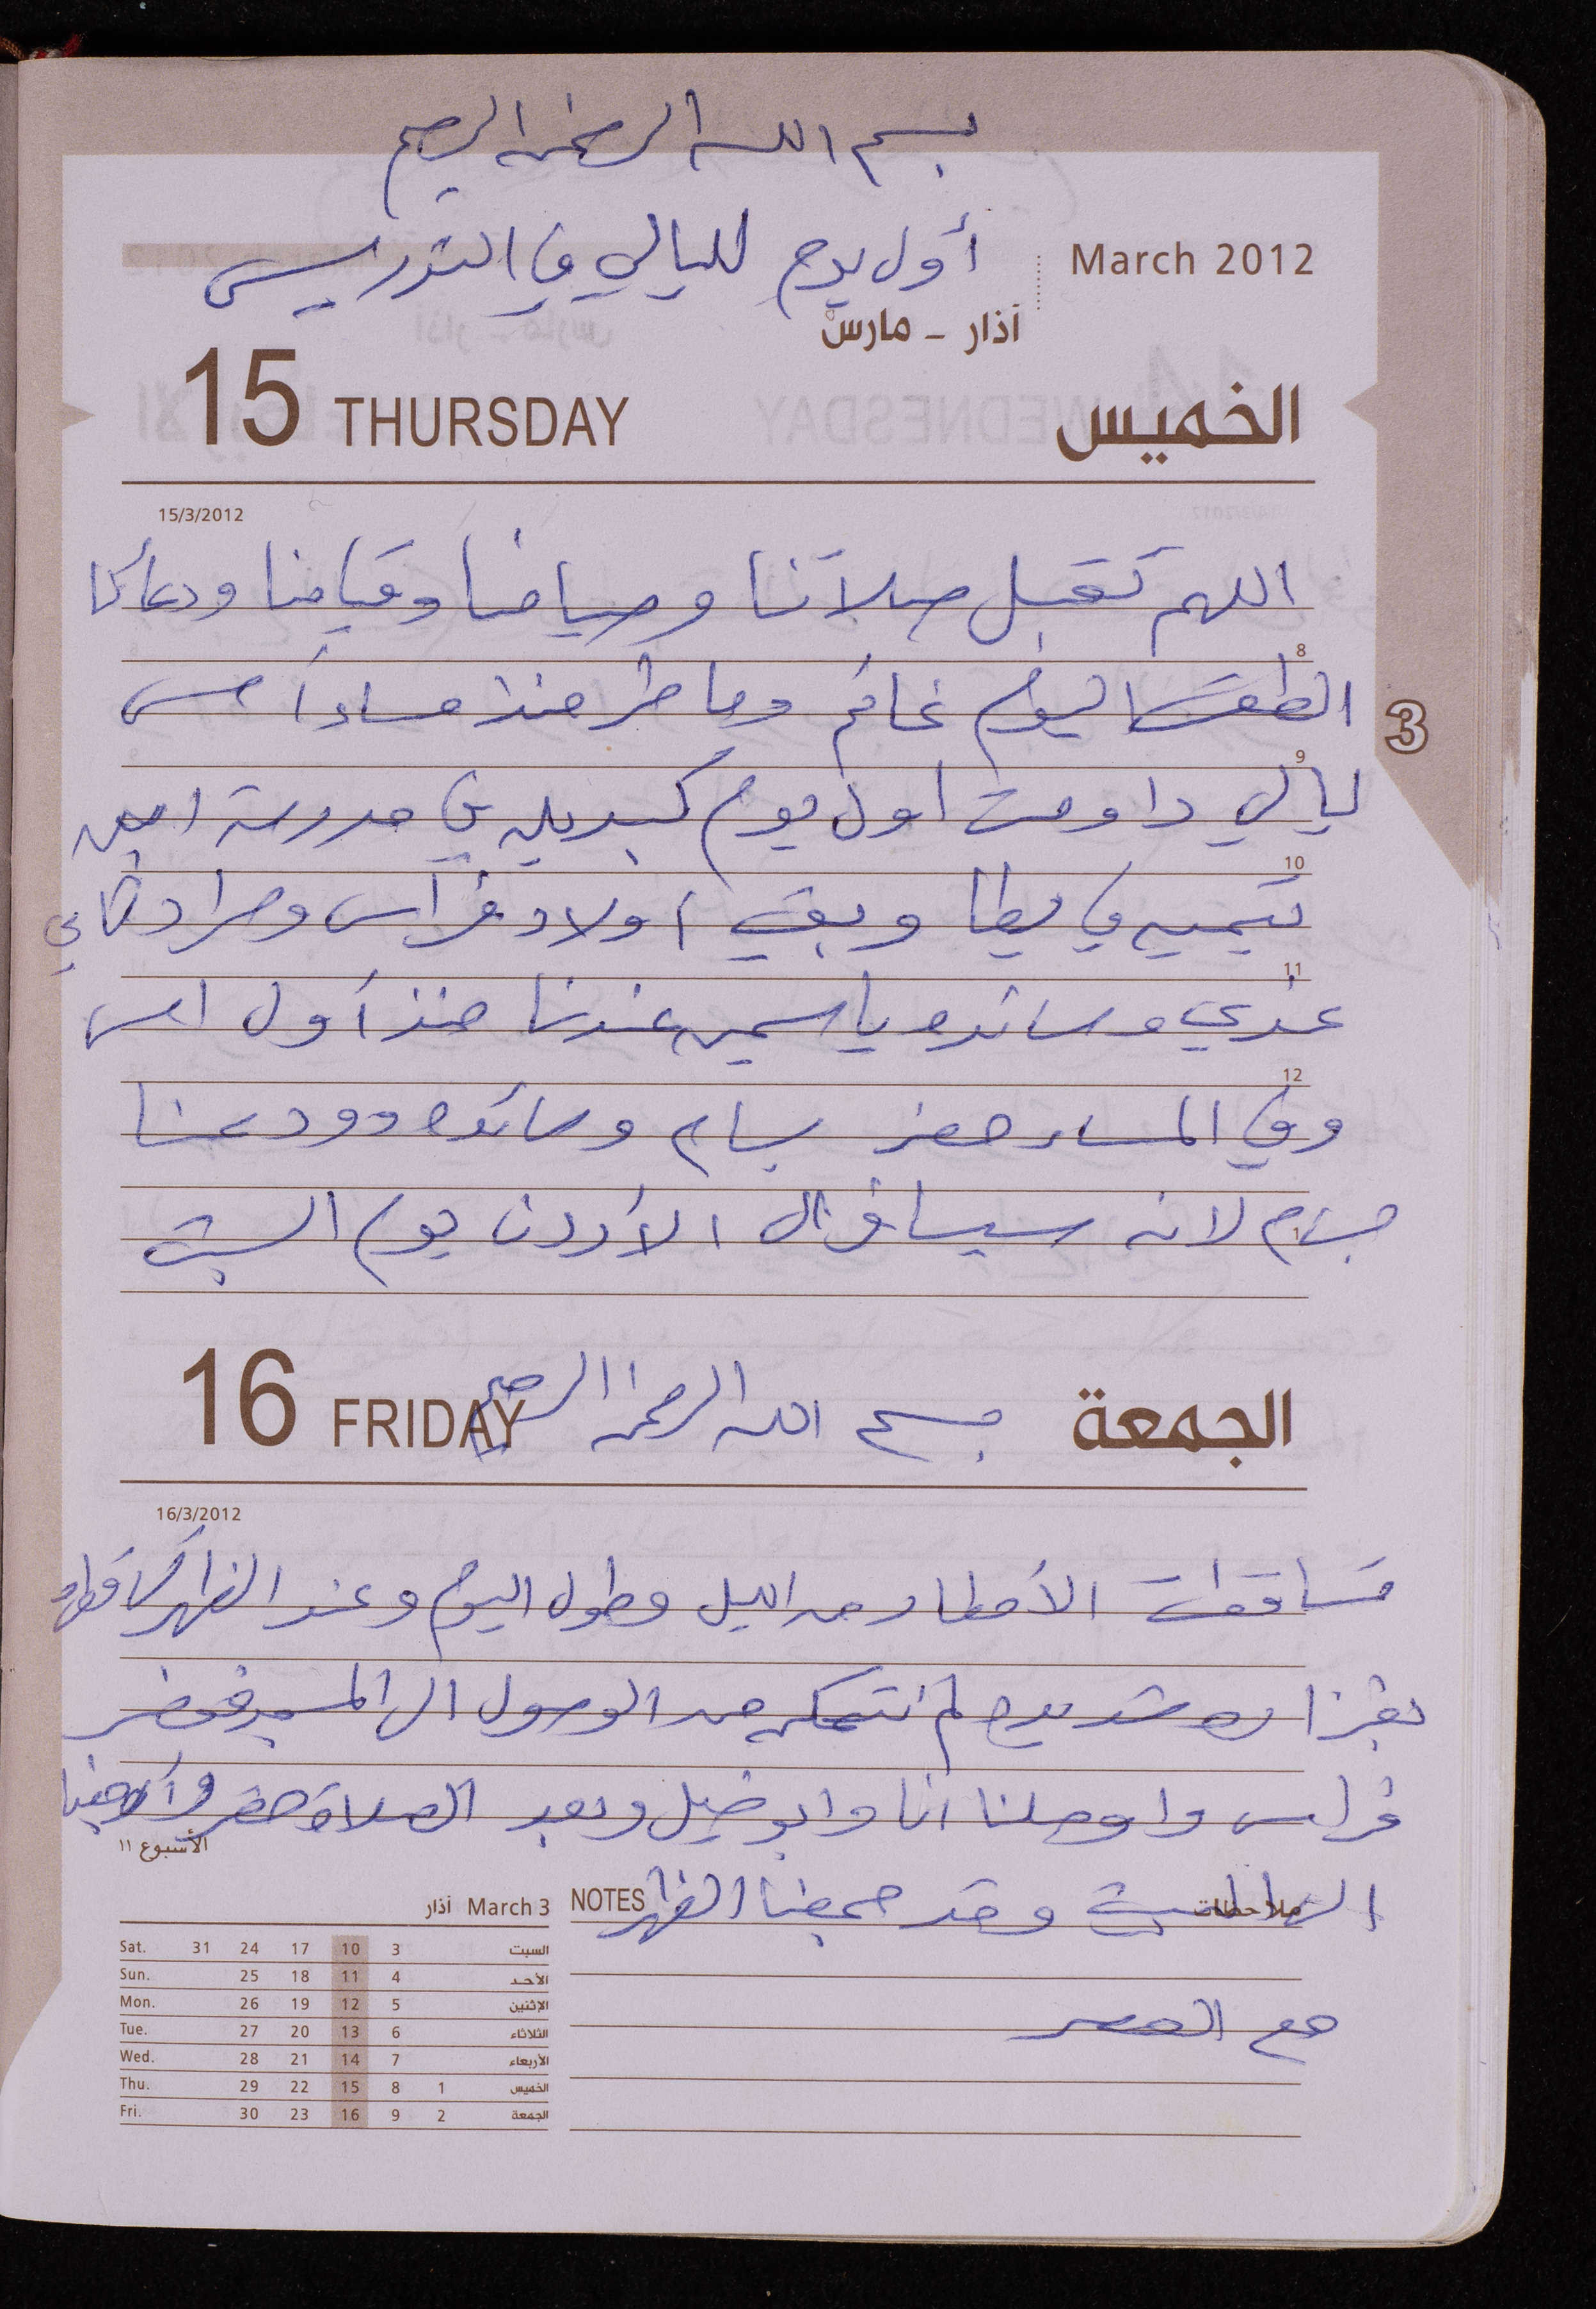 بسم الله الرحمن الرحيم
أول يوم لليالي في التدريس
March 2012
آذار - مارس
15 THURSDAY الخميس
15/3/2012
اللهم تقبل صلاتنا وصيامنا وقيامنا ودعائنا
8
الطقس اليوم غائم وماطر منذ مساء أمس
3
9
ليالي داومت اول يوم كبديله في مدرسة ابن
10
تيميه في يطا وبقي أولاد فراس ومراد
11
عندي وسائده ياسمين عندنا منذ أول امس
12
وفي المساء حضر بسام وسائده وودعنا
بسام لانه سيسافر الى الأردن يوم السبت
16 FRIDAY الجمعة
بسم الله الرحمن الرحيم
16/3/2012
تساقطت الأمطار من الليل وطول اليوم وعند الظهر
بغزاره شديده لم نتمكن من الوصول الى المسجد فحضر
فراس واوصلنا انا وابو خليل وبعد الصلاة حضر وأرجعنا
الأسبوع ١١
الى البيت وقد جمعنا الظهر
مع العصر
ملاحظات NOTES
March 3 آذار
Sat. 31 24 17 10 3 السبت
Sun. 25 18 11 4 الأحد
Mon. 26 19 12 5 الإثنين
Tue. 27 20 13 6 الثلاثاء
Wed. 28 21 14 7 الأربعاء
Thu. 29 22 15 8 1 الخميس
Fri. 30 23 16 9 2 الجمعة